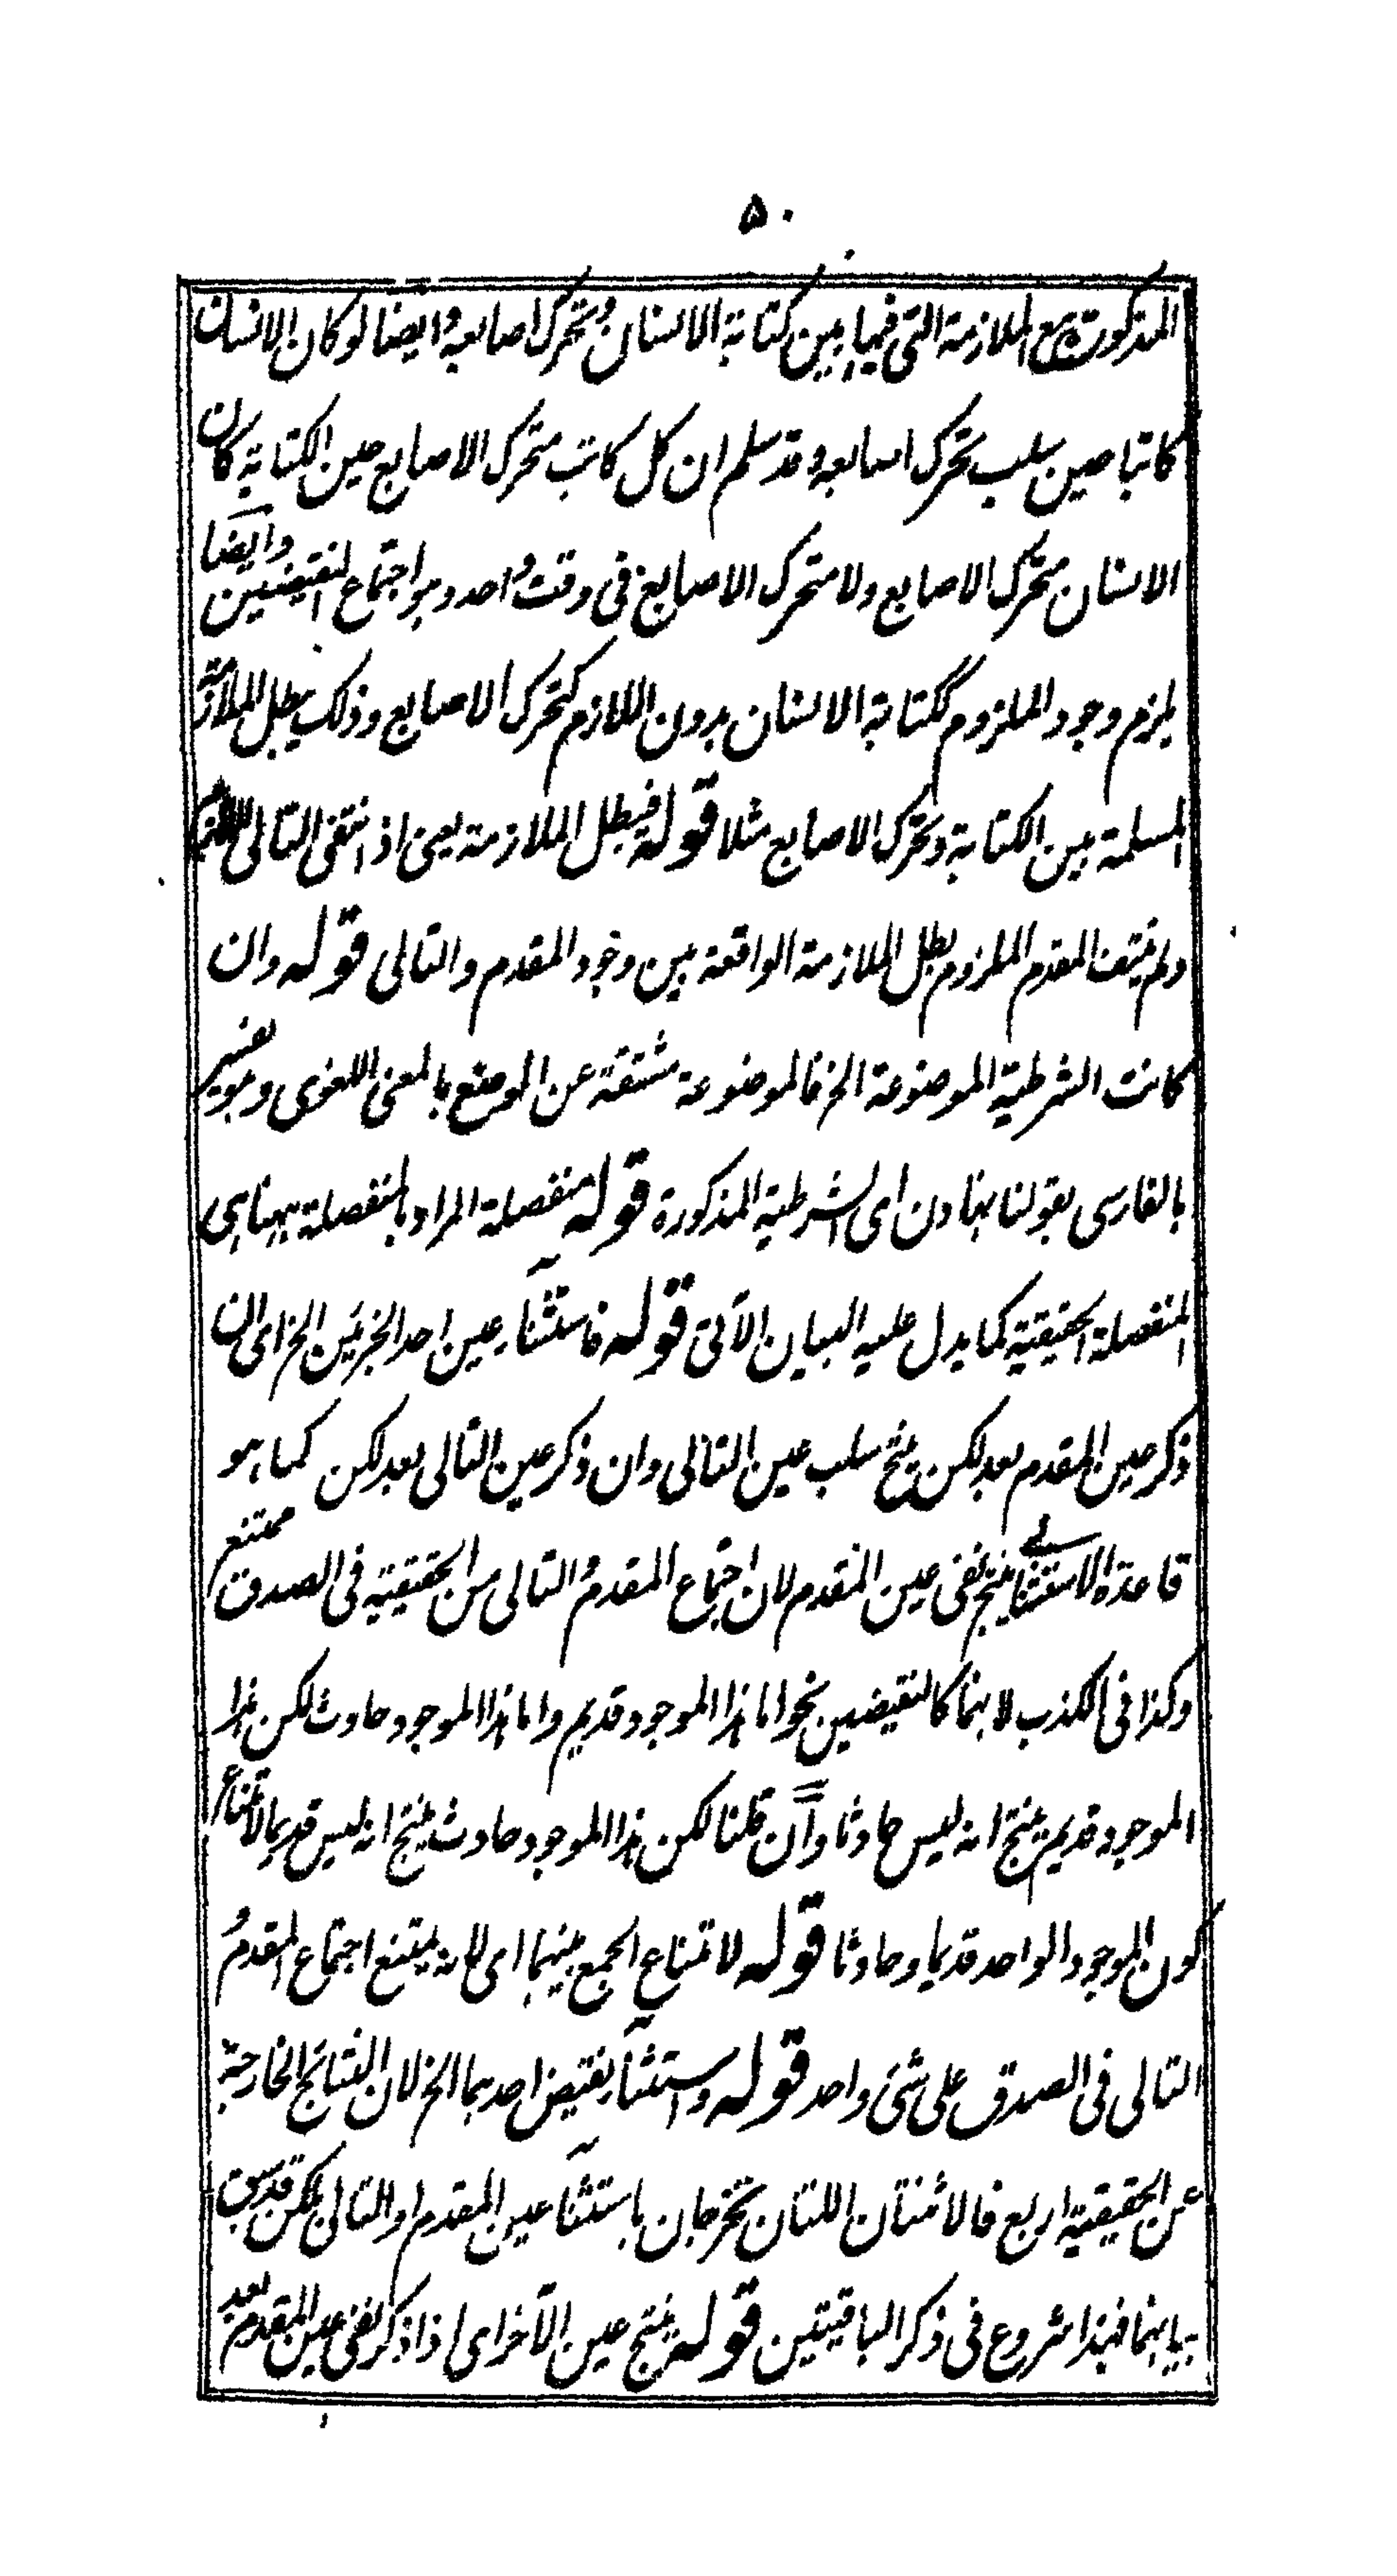 ۵۰
المذكورتين مع الملازمة التى فيما بين كتابة الانسان وتحرك اصابعه وايضا لو كان الانسان
كاتبا حين سلب تحرك اصابعه وقد سلم ان كل كاتب متحرك الاصابع حين الكتابة كان
الانسان متحرك الاصابع ولا متحرك الاصابع فى وقت واحد وهو اجتماع النقيضين وايضا
يلزم وجود الملزوم ككتابة الانسان بدون اللازم كتحرك الاصابع وذلك يبطل الملازمة
المسلمة بين الكتابة وتحرك الاصابع مثلا قوله فيبطل الملازمة يعنى اذ انتفى التالى
ولم ينتف المقدم الملزوم بطل الملازمة الواقعة بين وجود المقدم والتالى قوله وان
كانت الشرطية الموضوعة الخ فالموضوعة مشتقة عن الوضع بالمعنى اللغوى وهو يفسر
بالفارسى بقولنا بنهادن اى الشرطية المذكورة قوله منفصلة المراد بالمنفصلة ههنا هى
المنفصلة الحقيقية كما يدل عليه البيان الآتى قوله فاستثناء عين احد الجزئين الخ اى ان
ذكر عين المقدم بعد لكن ينتج سلب عين التالى وان ذكر عين التالى بعد لكن كما هو
قاعدة الاستثنائى ينتج نفى عين المقدم لان اجتماع المقدم والتالى من الحقيقية فى الصدق ممتنع
وكذا فى الكذب لانهما كالنقيضين نحو اما هذا الموجود قديم واما هذا الموجود حادث لكن هذا
الموجود قديم ينتج انه ليس حادثا وان قلنا لكن هذا الموجود حادث ينتج انه ليس قديما لامتناع
كون الموجود الواحد قديما وحادثا قوله لامتناع الجمع بينهما اى لانه يمتنع اجتماع المقدم و
التالى فى الصدق على شئ واحد قوله واستثناء نقيض احدهما الخ لان النتائج الخارجة
عن الحقيقية اربع فالاثنتان اللتان تخرجان باستثناء عين المقدم او التالى بلكن قد سبق
بيانهما فهذا شروع فى ذكر الباقيتين قوله ينتج عين الآخر اى اذا ذكر نفى عين المقدم بعد